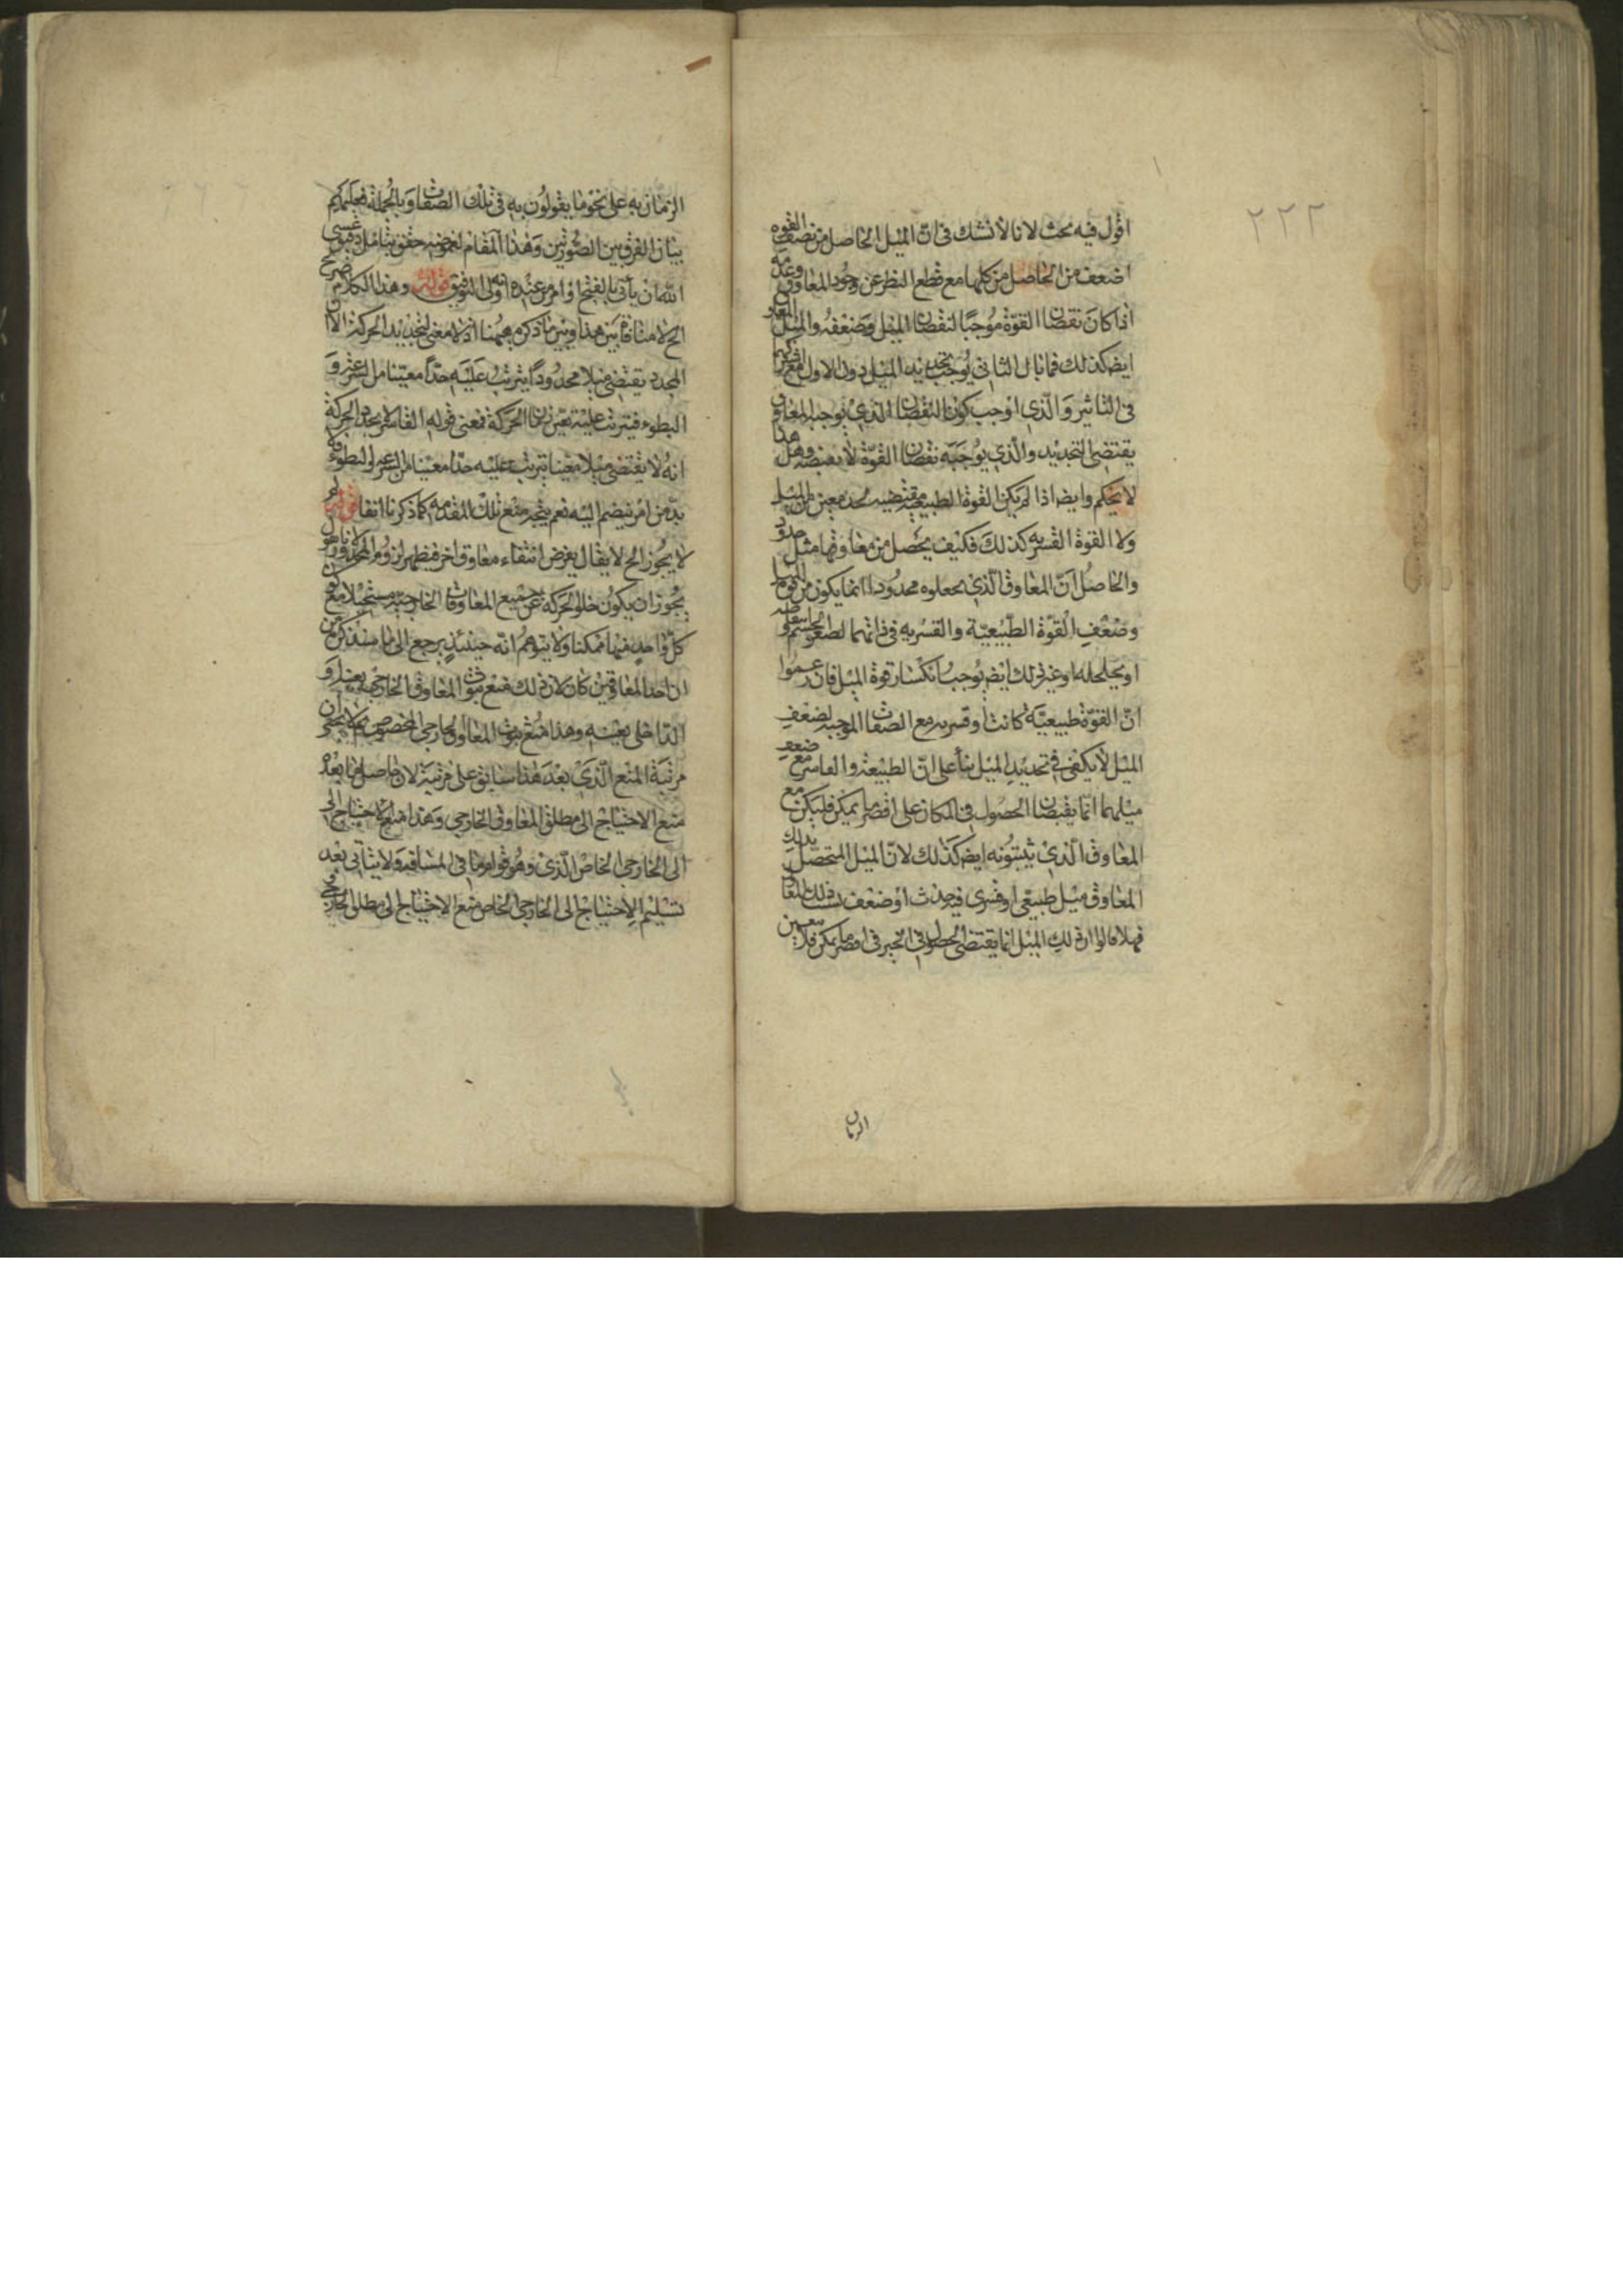 ٢٢٢
اقول فيه بحث لانا لا نشك فى ان الميل الحاصل من نصف القوه
اضعف من الحاصل من كلها مع قطع النظر عن وجود المعاوق وعدمه
اذا كان نقصان القوة موجبا لنقصان الميل وضعفه والميل المعاوق
ايضا كذلك فما بال الثانى يوجب تحديد الميل دون الاول مع
فى التاثير والذى اوجب كون النقصان الذى يوجبه المعاوق
يقتضى التحديد والذى يوجبه نقصان القوة لا يقتضيه وهل هذا
الا تحكم وايضا اذا لم يكن القوة الطبيعية مقتضيه لحد معين من الميل
ولا القوة القسريه كذلك فكيف يحصل من معاوقها مثل
والحاصل ان المعاوق الذى جعلوه محدودا انما يكون من قوة
وضعف القوة الطبيعية والقسريه فى ذاتهما لصغر الجسم
او تخلخله او غير ذلك ايضا يوجب انكسار قوة الميل فان زعموا
ان القوة طبيعية كانت او قسريه مع الصفات الموجبه لضعف
الميل لا يكفى فى تحديد الميل بناء على ان الطبيعة والقاسر مع ضعف
ميلهما انما يقتضيان الحصول فى المكان على اقصر ما يمكن فليكن مع
المعاوق الذى يثبتونه ايضا كذلك لان الميل المتحصل بذلك
المعاوق ميل طبيعى او قسرى فيحدث او ضعف بسبب ذلك المعاوق
فهلا قالوا ان ذلك الميل انما يقتضى الحصول فى الحيز فى اقصر ما يمكن فلا يتعين
الزمان
الزمان به على نحو ما يقولون به فى تلك الصفات وبالجملة فعليكم
بيان الفرق بين الصورتين وهذا المقام لغموضه حقيق بتامل دقيق عسى
الله ان يأتى بالفتح او امر من عنده انه ولى التوفيق قوله وهذا الكلام صريح
الخ لا منافاة بين هذا وبين ما ذكره بهمنا اذ لا معنى لتحديد الحركة الا ان
المحدد يقتضى ميلا محدودا يترتب عليه حدا معينا من السرعة و
البطوء فيترتب عليه تعين زمان الحركة فمعنى قوله القاسر لا يحدد الحركة
انه لا يقتضى ميلا معينا يترتب عليه حدا معينا من السرعه والبطوء
بد من امر ينضم اليه نعم يتجه منع تلك المقدمه كما ذكرنا انفا قوله لم
لا يجوز الخ لا يقال يفرض انتفاء معاوق اخر فيظهر لزوم المحذور لانا نقول
يجوز ان يكون خلو الحركه عن جميع المعاوقات الخارجيه مستحيلا مع كون
كل واحد فيها ممكنا ولا يتوهم انه حينئذ يرجع الى ما سنذكر من
ان احد المعاوقين كان لان ذلك منع ثبوت المعاوق الخارجى بعينه او
الداخلى بعينه وهذا منع ثبوت المعاوق الخارجى المخصوص كما لا يخفى ان
مرتبة المنع الذى بعد هذا سابق على مرتبته لان حاصل ما بعده
منع الاحتياج الى مطلق المعاوق الخارجى وهذا منع الاحتياج الى
الى الخارجى الخاص الذى وهو قوام ما فى المسافه ولا يتأتى بعد
تسليم الاحتياج الى الخارجى الخاص منع الاحتياج الى مطلق الخارجى